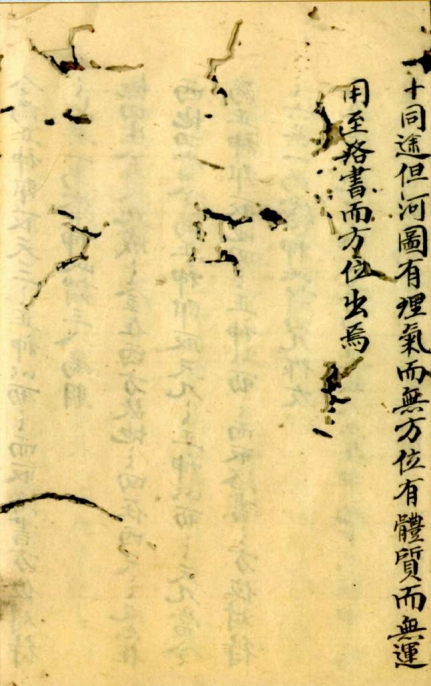 十同途但河圖有理氣而無方位有體質而無運
用至洛書而方位出焉